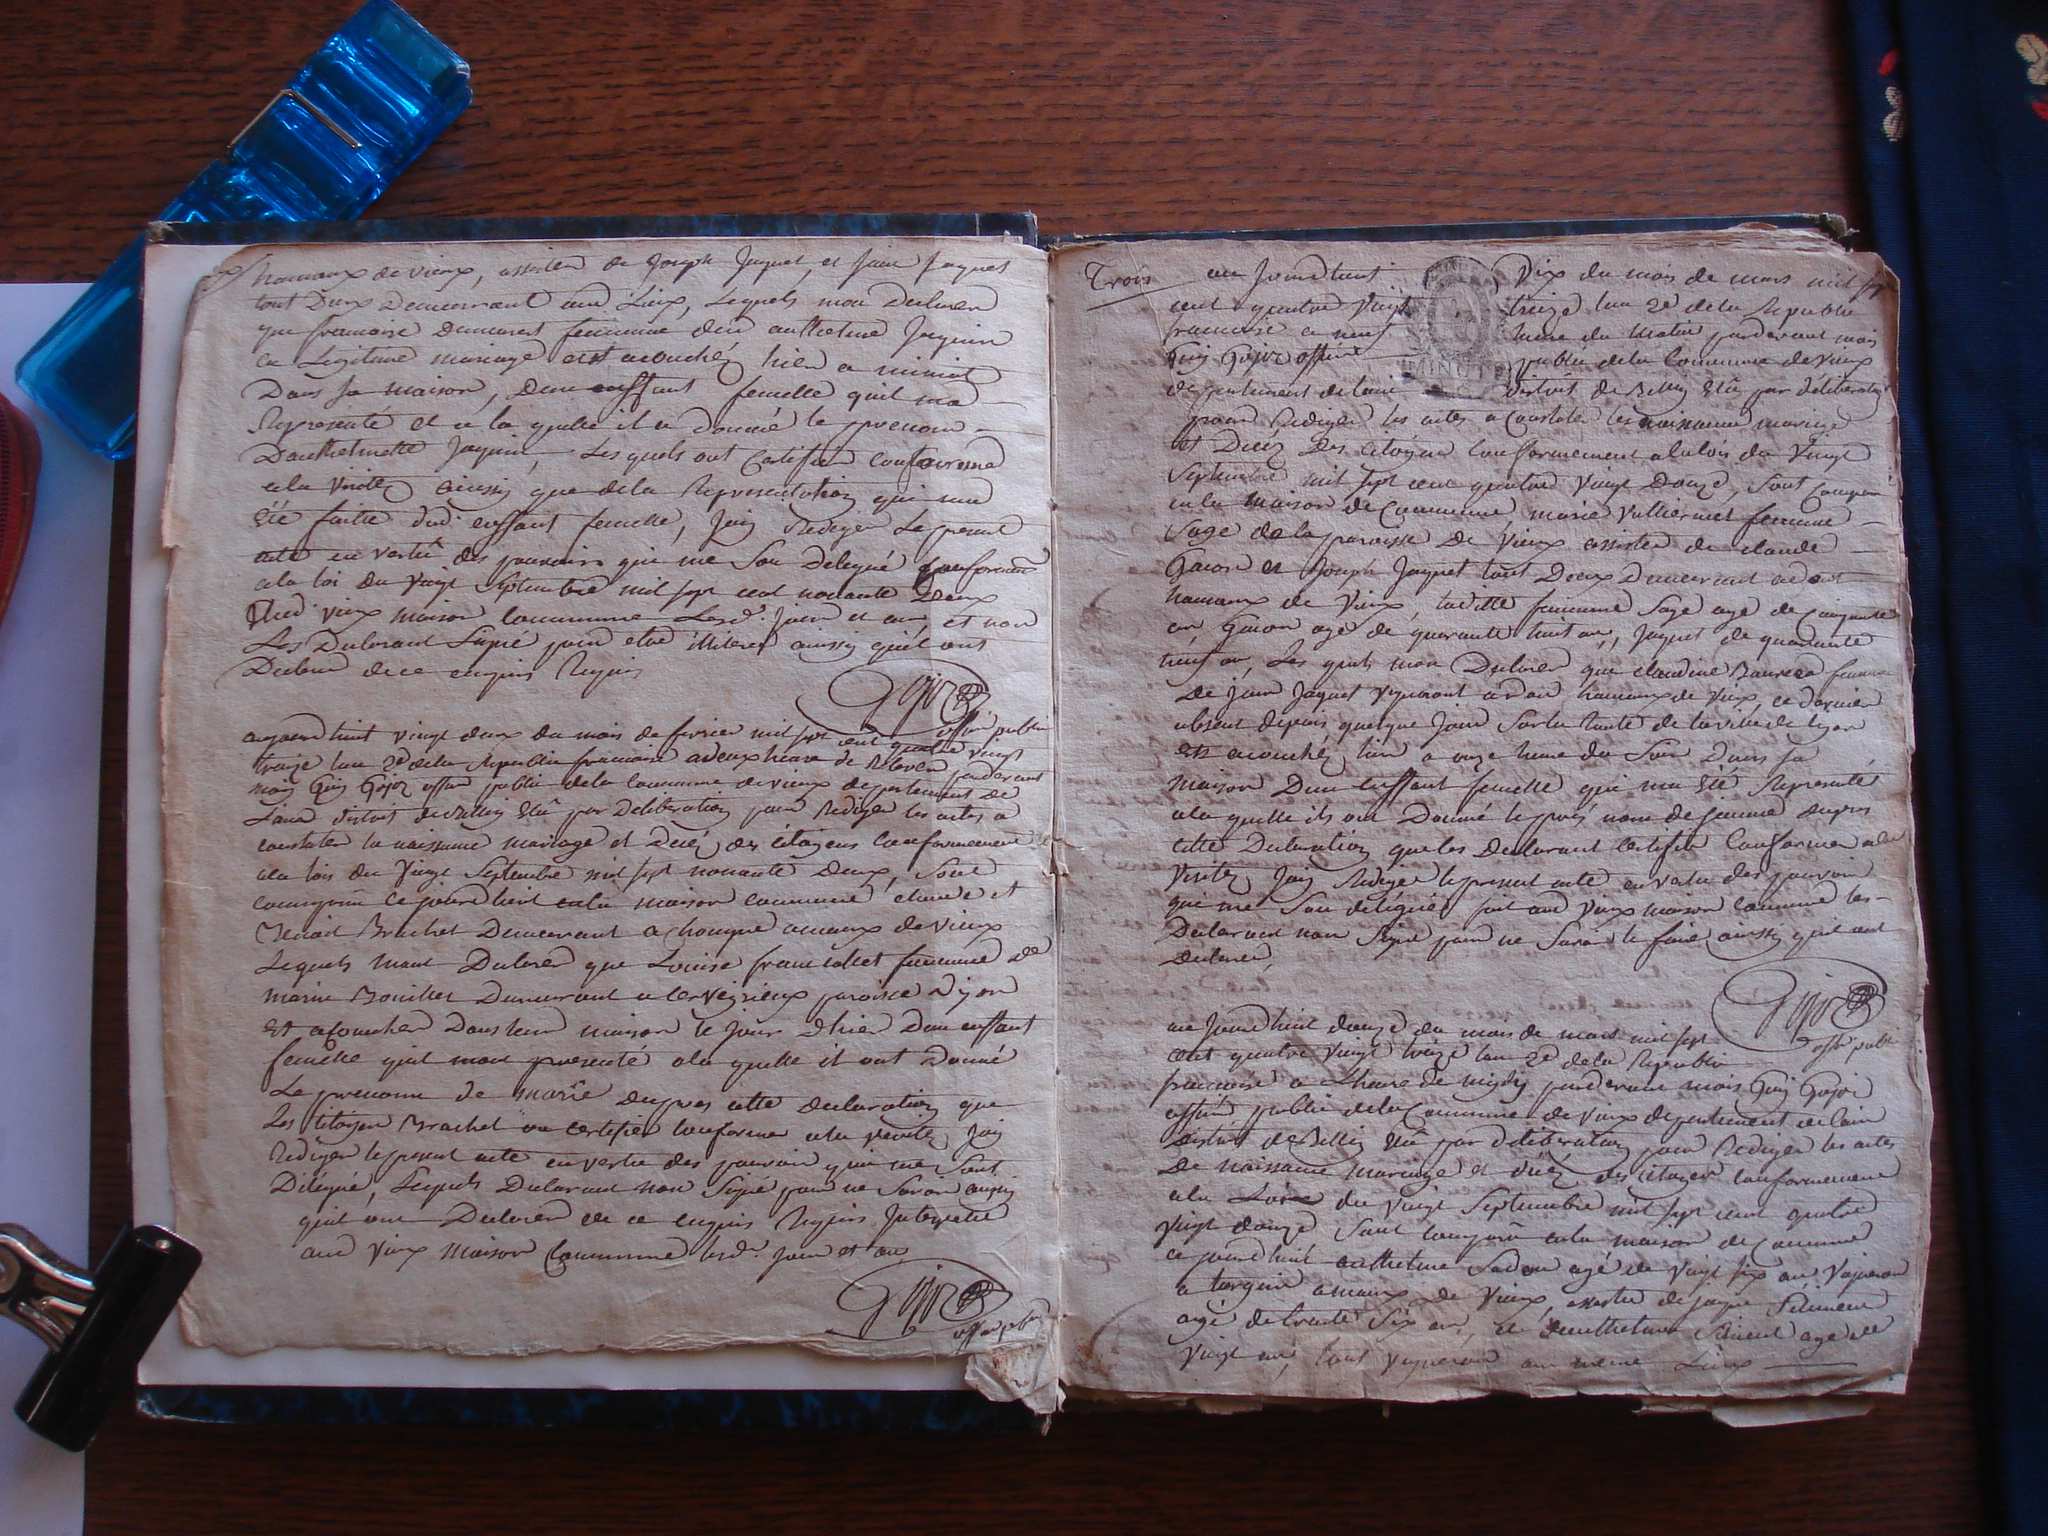 hamaux de vieux, assister de Joseph Jaquet, et Jean Jaques
tout Deux Demeurrant aud Lieux, Lesquels mon Declarer
que francoise Dumarest femme din anthelme Jaquin
en Legitime mariage est acouchéz hier a minuit
Dans sa maison, Dun enffant femelle quil ma
Representé et a la quelle il a Donné le prenom
Danthelmette Jaquin, Les quels ont Certifier conforme
ala Veritez aiussy que dela Representation qui ma
Eté faitte dud enffant femelle, Jaiy Rediger Le present
acte en vertû des pouvoirs qui me Son Delegué Conformem
ala loi du vingt Septembre mil sept cent nonante Deux
aud vieux maison Commune Lesd. Jour et an, et non
Les Declarant Signé pour etre illiterer aiussy quil ont
Declarer de ce enquis Requis
Gojoz
offier public
aujourd huit vingt deux du mois de fevrier mil sept cent quatre vingt
traize lan 2e dela Republiq francaise a deux heure de Relevée pardevant
moiy Guiy Gojoz offier public dela Commune de vieux departement de
Lain district de Belliy Elû par Deliberation pour Rediger les actes a
constater la naissance mariage et Decéz des citoyens Conformement
ala lois du Vingt Septembre mil sept nonante Deux, Sont
comparû ce jourd huit enla maison commune claude et
Benoit Brachet Demeurrant a chongne amaux de vieux
Lequels mont Declarer que Louise francallet femme de
marin Bouillet Demeurrant a Cerveyrieux paroisse Dyon
Est acoucher Dans leur maison le jour Dhier Dun enffant
femelle quil mont presenté ala quelle il ont Donné
Le prenom de marie Depres cette declaration que
Les citoyen Brachet on certifier conforme ala veritéz Jaiy
Rediger le present acte en vertu des pouvoir qui me sont
Delegué, Lequels Declarant non Signé pour ne Savoir aiussy
quil ont Declarer de ce enquis Requis Interpellé
aud Vieux maison Commune lesd. jour et an
Gojoz
offier public
Trois
au Jourdhuit Dix du mois de mars mil sept
cent quatre Vingt treize lan 2e dela Republi
francoise a neuf heure du matin pardevant moiy
Guiy Gojoz offier public dela Commune de vieux
departement de lain district de Belliy Elû par deliberation
pour Rediger les actes a Constater les naissance mariage
et Decéz Des citoyen Conformement alalois du Vingt
Septembre mil sept cent quatre Vingt Douze, Sont Comparû
enla maison de Commune marie Vulliermet femme
Sage de la paroisse De Vieux assister de claude
Gacon et Joseph Jaquet tout Deux Demeurrant
hamaux de Vieux, laditte femme Sage age de Cinquante
an Gacon age de quarante huit an, Jaquet de quarante
neuf an, Les quels mon Declarer que claudine femme
De Jean Jaquet Vigneront hamaux de Vieux, ce darnier
absent depuis quelque Jour Sur la Route de la ville de lyon
Est acouchéz hier a onze heure du Soir Dans sa
maison Dun enffant femelle qui ma Eté Representé
ala quelle ils ont Donné le prés nom de Jeanne Depres
cette Declaration que les Declarant Certifier Conforme ala
Veritéz Jaiy Rediger le present acte en vertu des pouvoir
qui me Son deleguér fait aud Vieux maison Commune les
Declarant non Signé pour ne Savoir le faire aiussy quil ont
declarer,
Gojoz
offier public
au Jourdhuit douze du mois de mars mil sept
cent quatre vingt treize lan 2e dela Republi
francoise a Lheure de midiy pardevant moiy Guiy Gojoz
offier public dela Commune de Vieux departement de lain
district de Belliy Elû par deliberation pour Rediger les actes
De naissance mariage et décéz des citoyen Conformement
ala Loix du Vingt Septembre mil sept cent quatre
Vingt douze Sont Comparû enla maison de Commune
ce jourd huit anthelme age de Vingt six an Vigneron
a amaux de Vieux, assister de jaque
age de trante Six an, et danthelme age de
Vingt an, tout Vigneron au meme Lieux